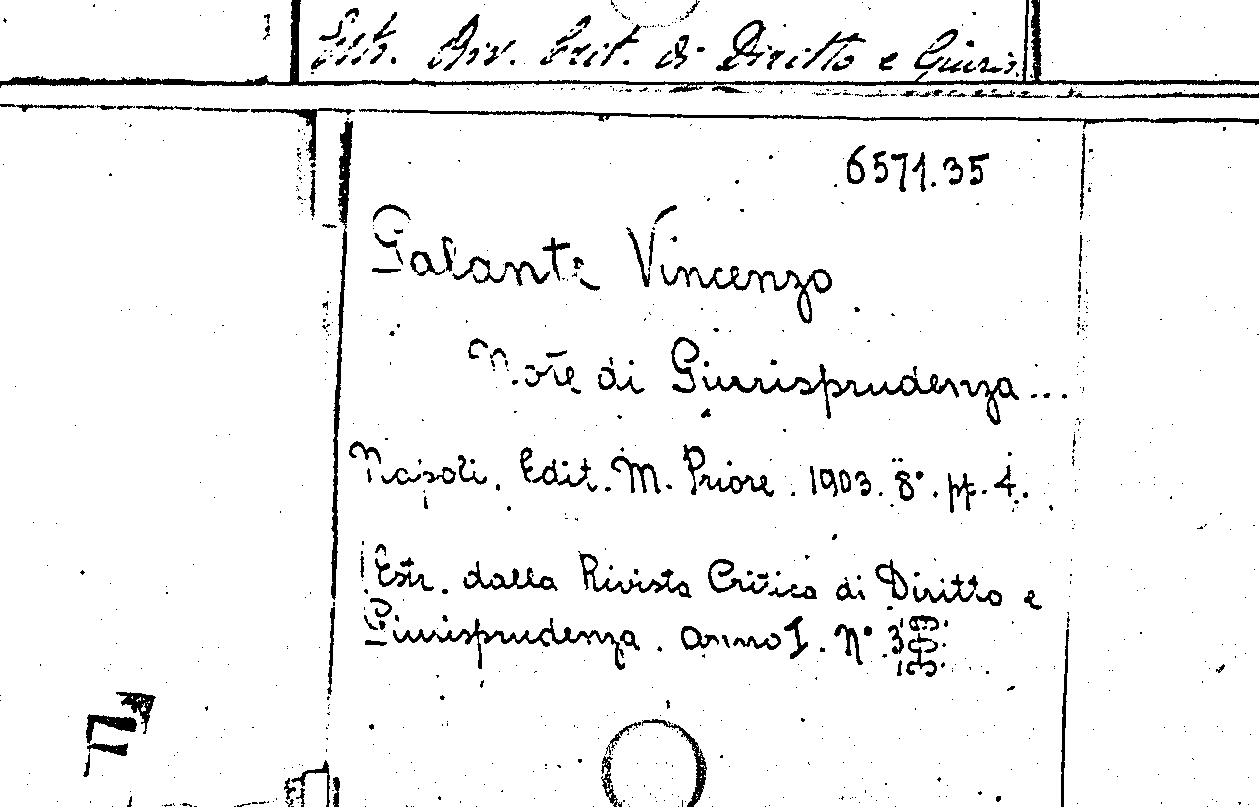 Estr. Riv. Crit. di Diritto e Giuris.
6571.35
Galante Vincenzo
Note di Giurisprudenza...
Napoli. Edit. M. Priore. 1903. 8°. pp. 4.
Estr. dalla Rivista Critica di Diritto e
Giurisprudenza. anno I. N° 3
F